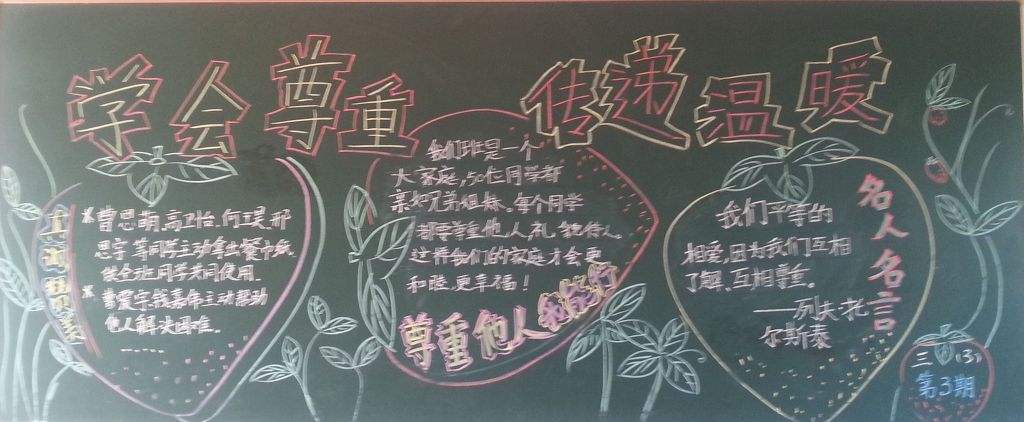 学会尊重 传递温暖
曹思萌,高卫怡,何
思宇等同学主动拿出餐巾纸,
供全班同学共同使用.
曹震宇钱嘉伟主动帮助
他人解决困难。
……
我们班是一个
大家庭,
兄弟姐妹。每个同学
都要尊重他人,礼貌待人。
这样我们的家庭才会更
和睦,更幸福!
尊重他人我能行
我们平等的
相爱,因为我们互相
了解,互相尊重。
——列夫·托
尔斯泰
名人名言
三(3)
第3期